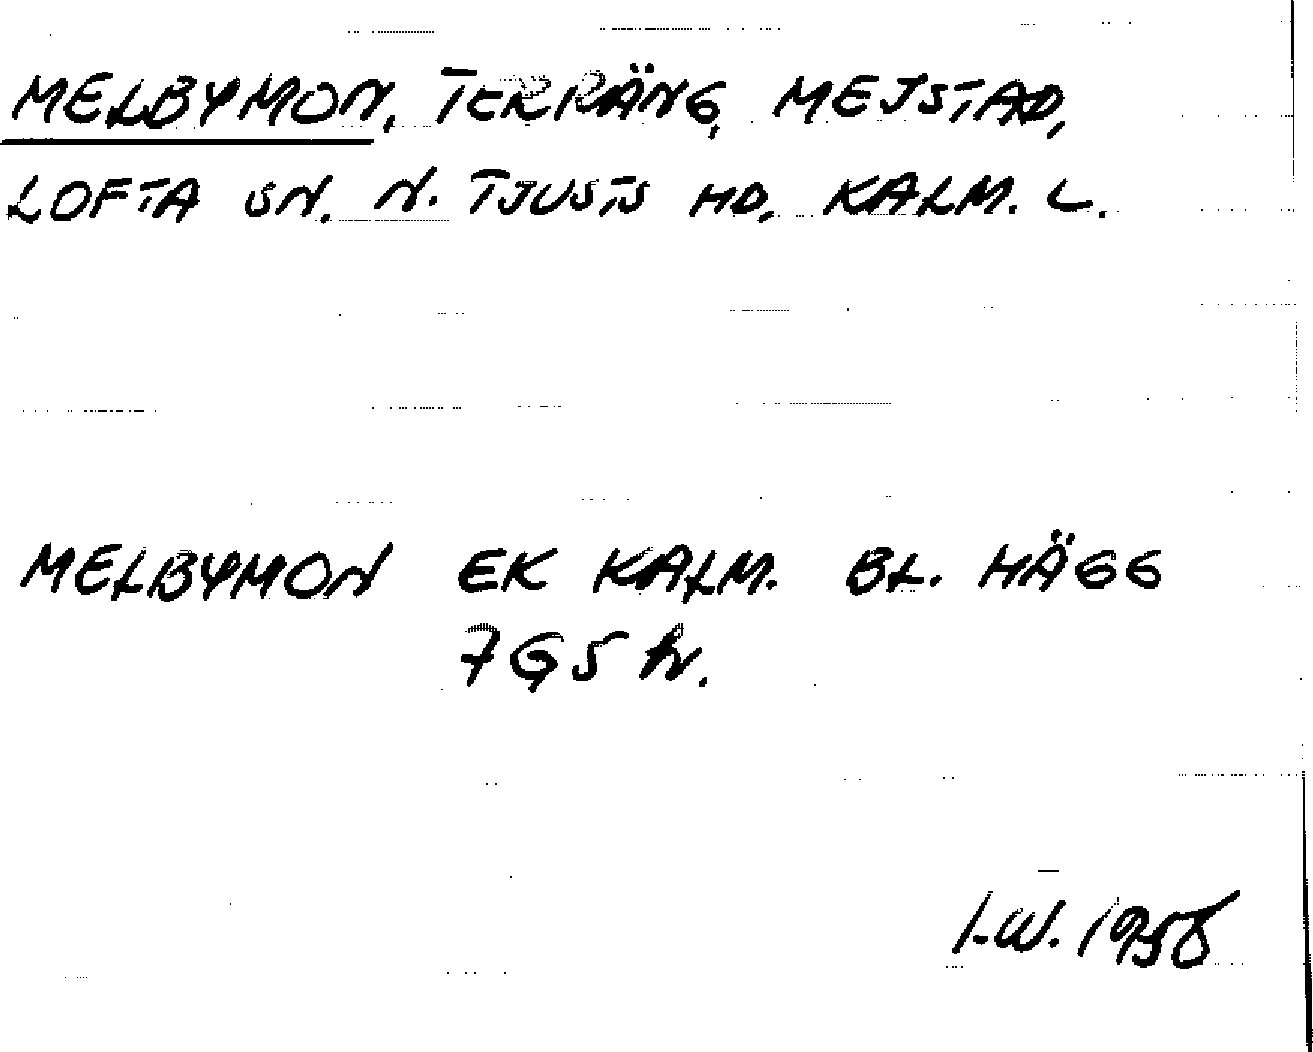 MELBYMON, TERRÄNG, MEJSTAD,
LOFTA SN. N. TJUSTS HD. KALM. L.
MELBYMON EK KALM. BL. HÄGG
7G5 hv.
I.W. 1958